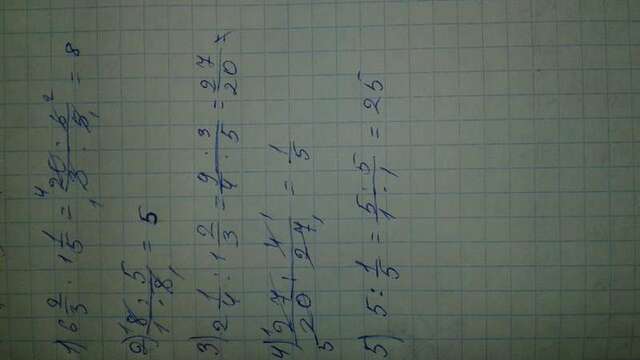 1) 6 2/3 · 1 1/5 = 20 · 6 / 3 · 5 = 8
2) 8 · 5 / 1 · 8 = 5
3) 2 1/4 : 1 2/3 = 9 · 3 / 4 · 5 = 27/20 =
4) 27 · 4 / 20 · 27 = 1/5
5) 5 : 1/5 = 5 · 5 / 1 · 1 = 25